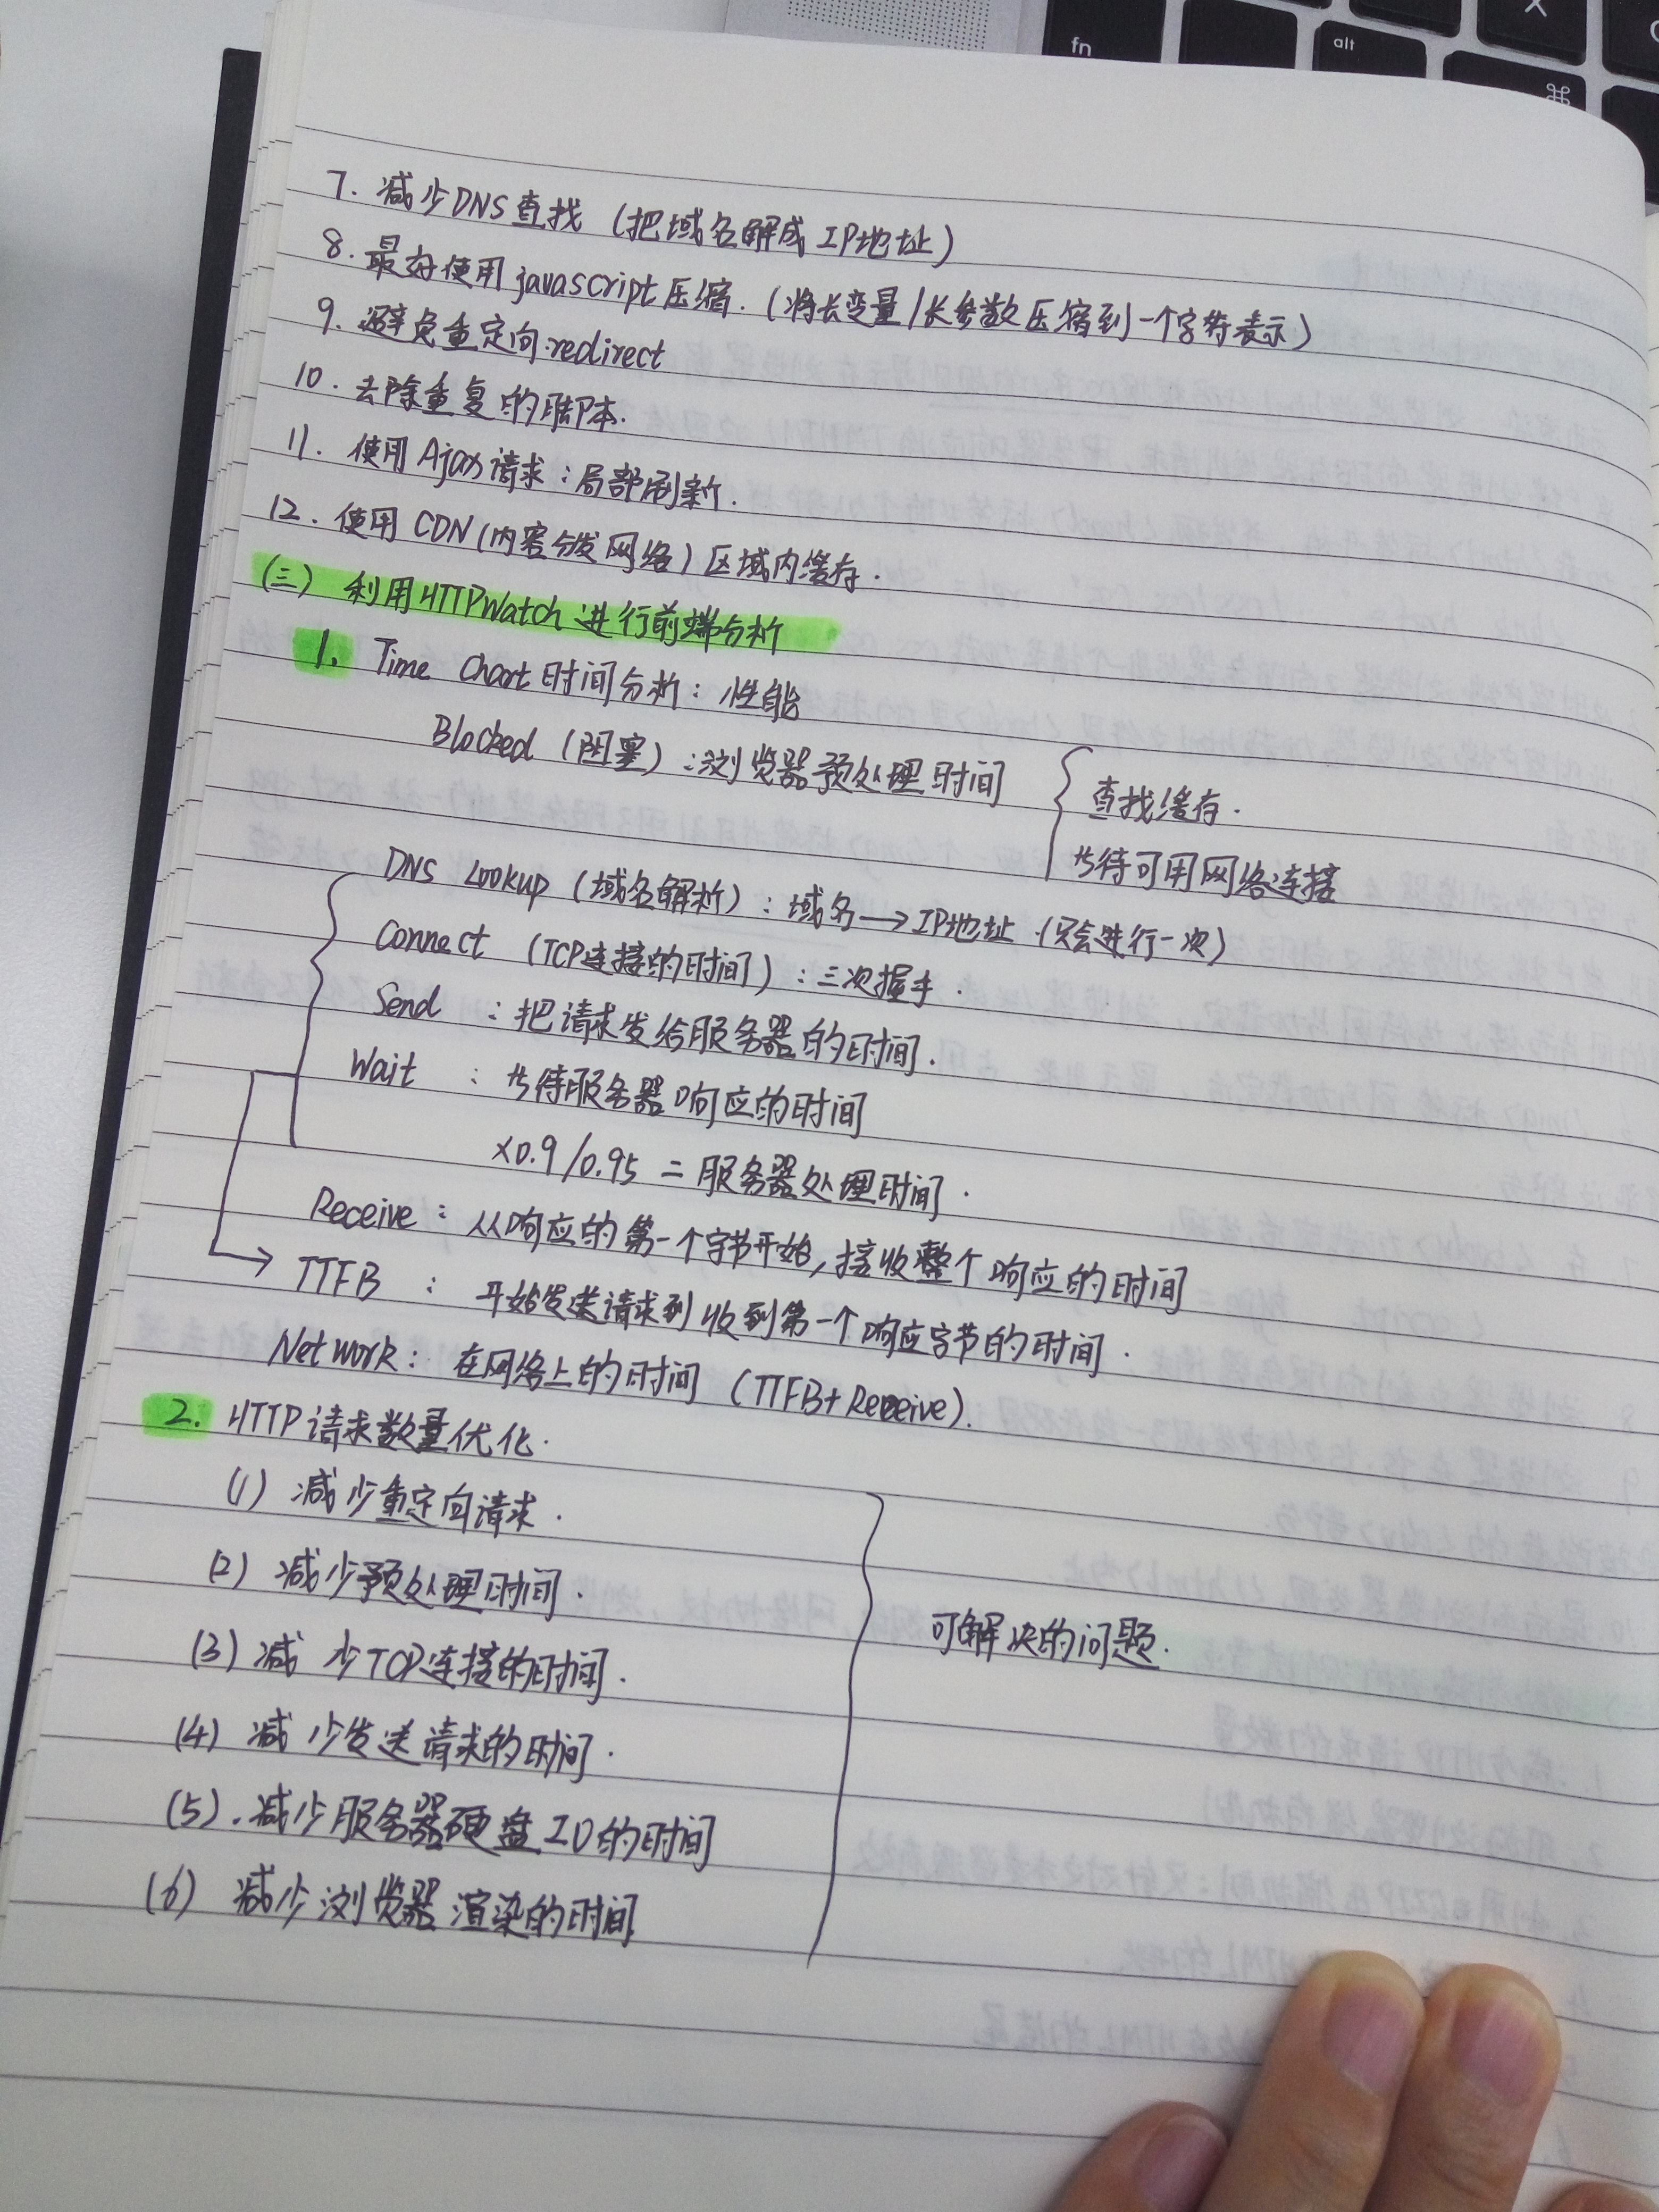 fn
alt
⌘
X
7. 减少DNS查找 (把域名解成IP地址)
8. 最好使用javascript压缩. (将长变量/长参数压缩到一个字符表示)
9. 避免重定向:redirect
10. 去除重复的脚本.
11. 使用Ajax请求:局部刷新.
12. 使用CDN(内容分发网络)区域内缓存.
(三) 利用HTTPWatch进行前端分析
1. Time Chart时间分析: 性能
Blocked (阻塞):浏览器预处理时间
查找缓存.
等待可用网络连接
DNS Lookup (域名解析): 域名→IP地址.(只会进行一次)
Connect (TCP连接的时间): 三次握手.
Send : 把请求发给服务器的时间.
Wait : 等待服务器响应的时间
×0.9/0.95 = 服务器处理时间.
Receive: 从响应的第一个字节开始,接收整个响应的时间
TTFB : 开始发送请求到收到第一个响应字节的时间.
Network: 在网络上的时间 (TTFB+Receive).
2. HTTP请求数量优化.
(1) 减少重定向请求.
(2) 减少预处理时间.
(3) 减少TCP连接的时间.
(4) 减少发送请求的时间.
(5).减少服务器硬盘IO的时间
(6) 减少浏览器渲染的时间
可解决的问题.